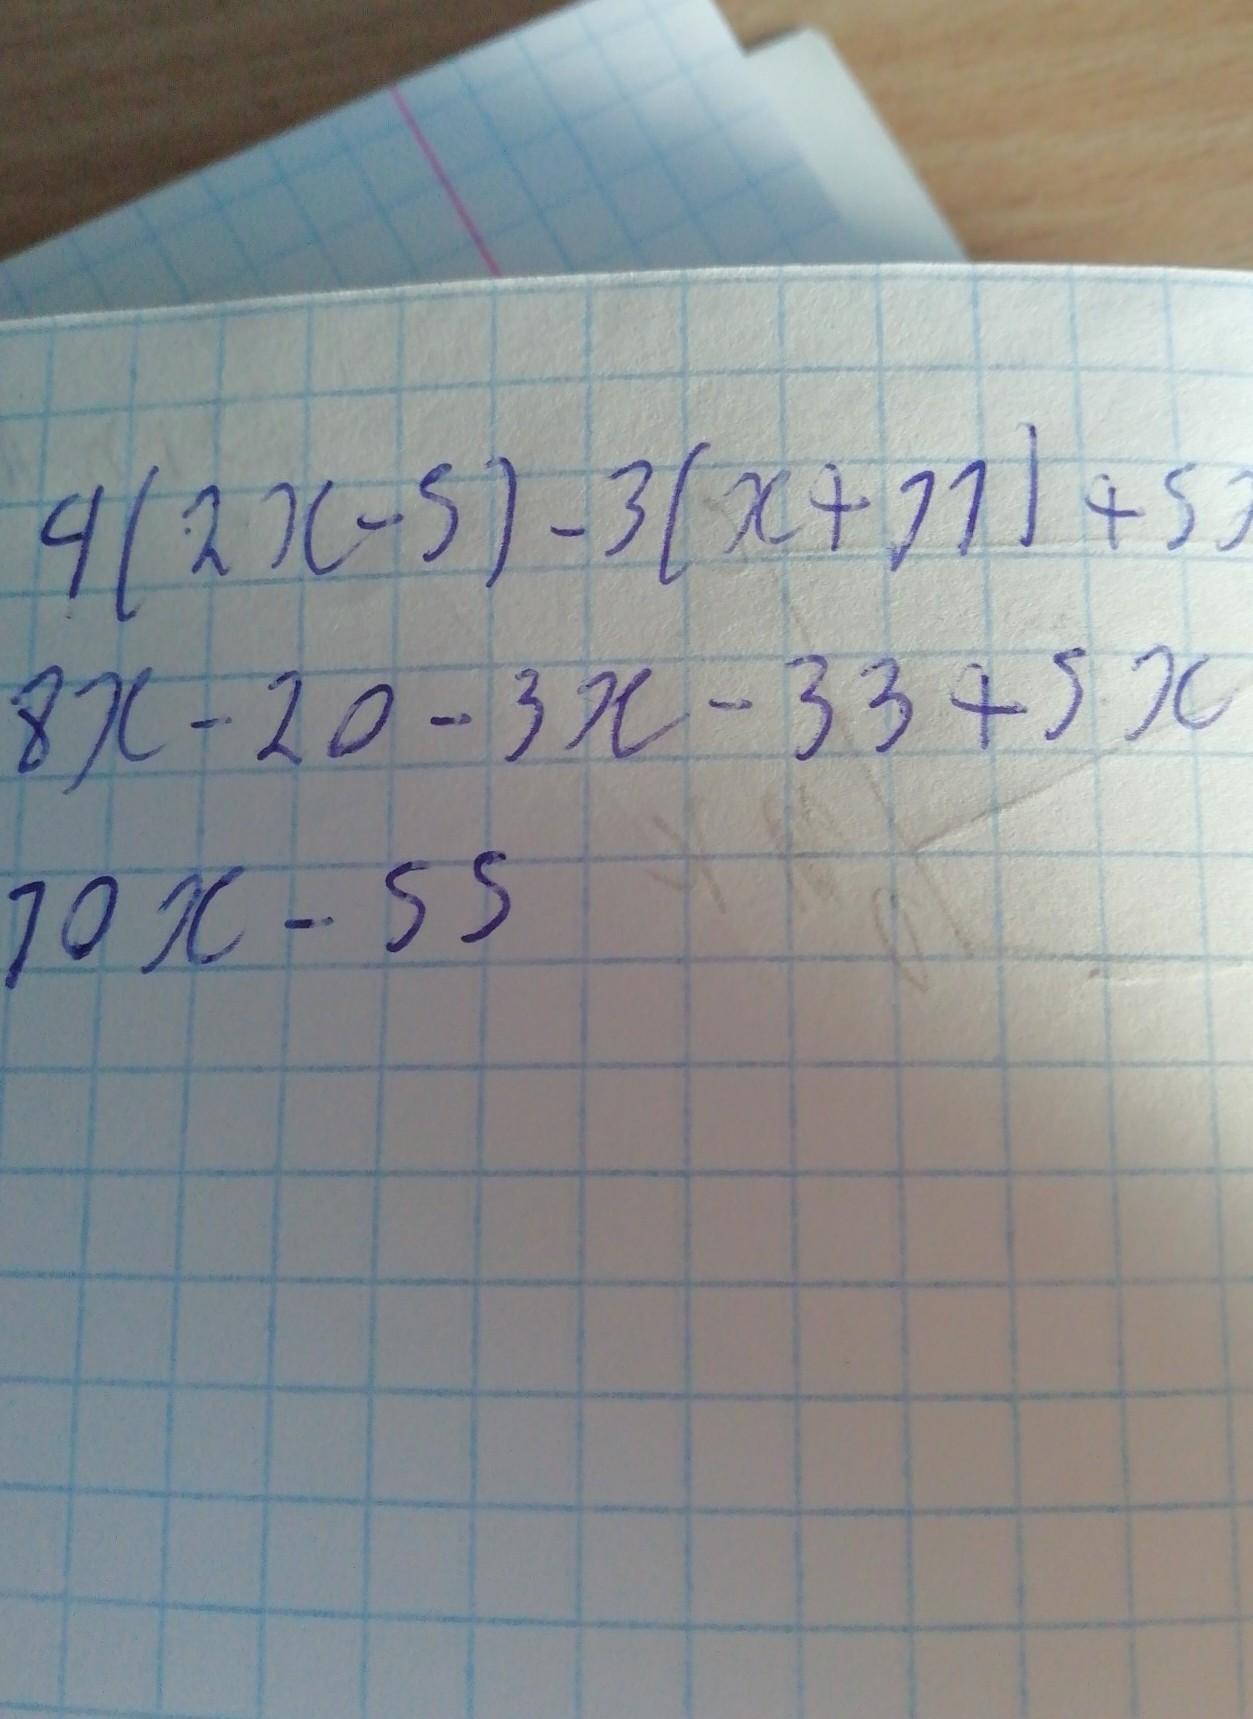 4(2x-5)-3(x+11)+5x
8x-20-3x-33+5x
10x-55